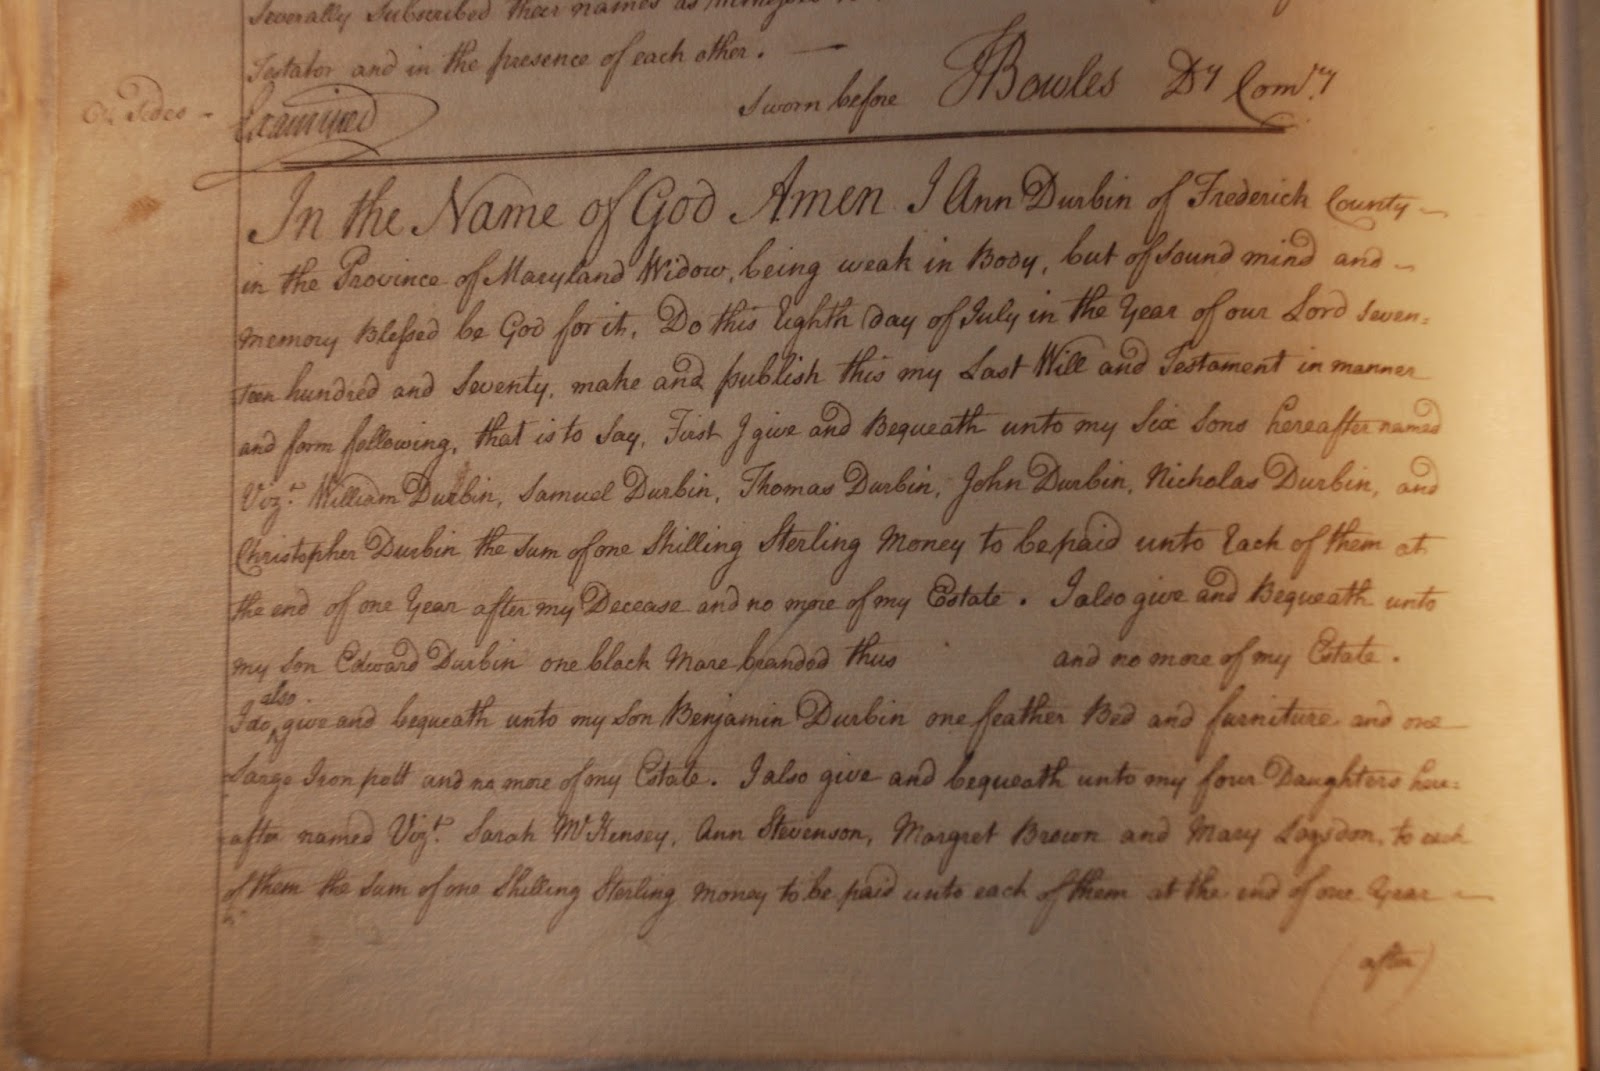 Severally Subscribed their names as
Testator and in the presence of each other. —
Examined Sworn before JBowles Dy Comry
In the Name of God Amen I Ann Durbin of Frederick County
in the Province of Maryland Widow, being weak in Body, but of sound mind and
memory Blessed be God for it, Do this Eighth day of July in the Year of our Lord Seven=
teen hundred and seventy, make and publish this my Last Will and Testament in manner
and form following, that is to Say, First I give and Bequeath unto my Six Sons hereafter named
Vizt. William Durbin, Samuel Durbin, Thomas Durbin, John Durbin, Nicholas Durbin, and
Christopher Durbin the Sum of one Shilling Sterling Money to be paid unto Each of them at
the end of one Year after my Decease and no more of my Estate. I also give and Bequeath unto
my Son Edward Durbin one black Mare branded thus and no more of my Estate.
I do also give and bequeath unto my Son Benjamin Durbin one feather Bed and furniture and one
Large Iron pott and no more of my Estate. I also give and bequeath unto my four Daughters here=
after named Vizt. Sarah McKensey, Ann Stevenson, Margret Brown and Mary Logsdon, to each
of them the Sum of one Shilling Sterling Money to be paid unto each of them at the end of one Year
(after)